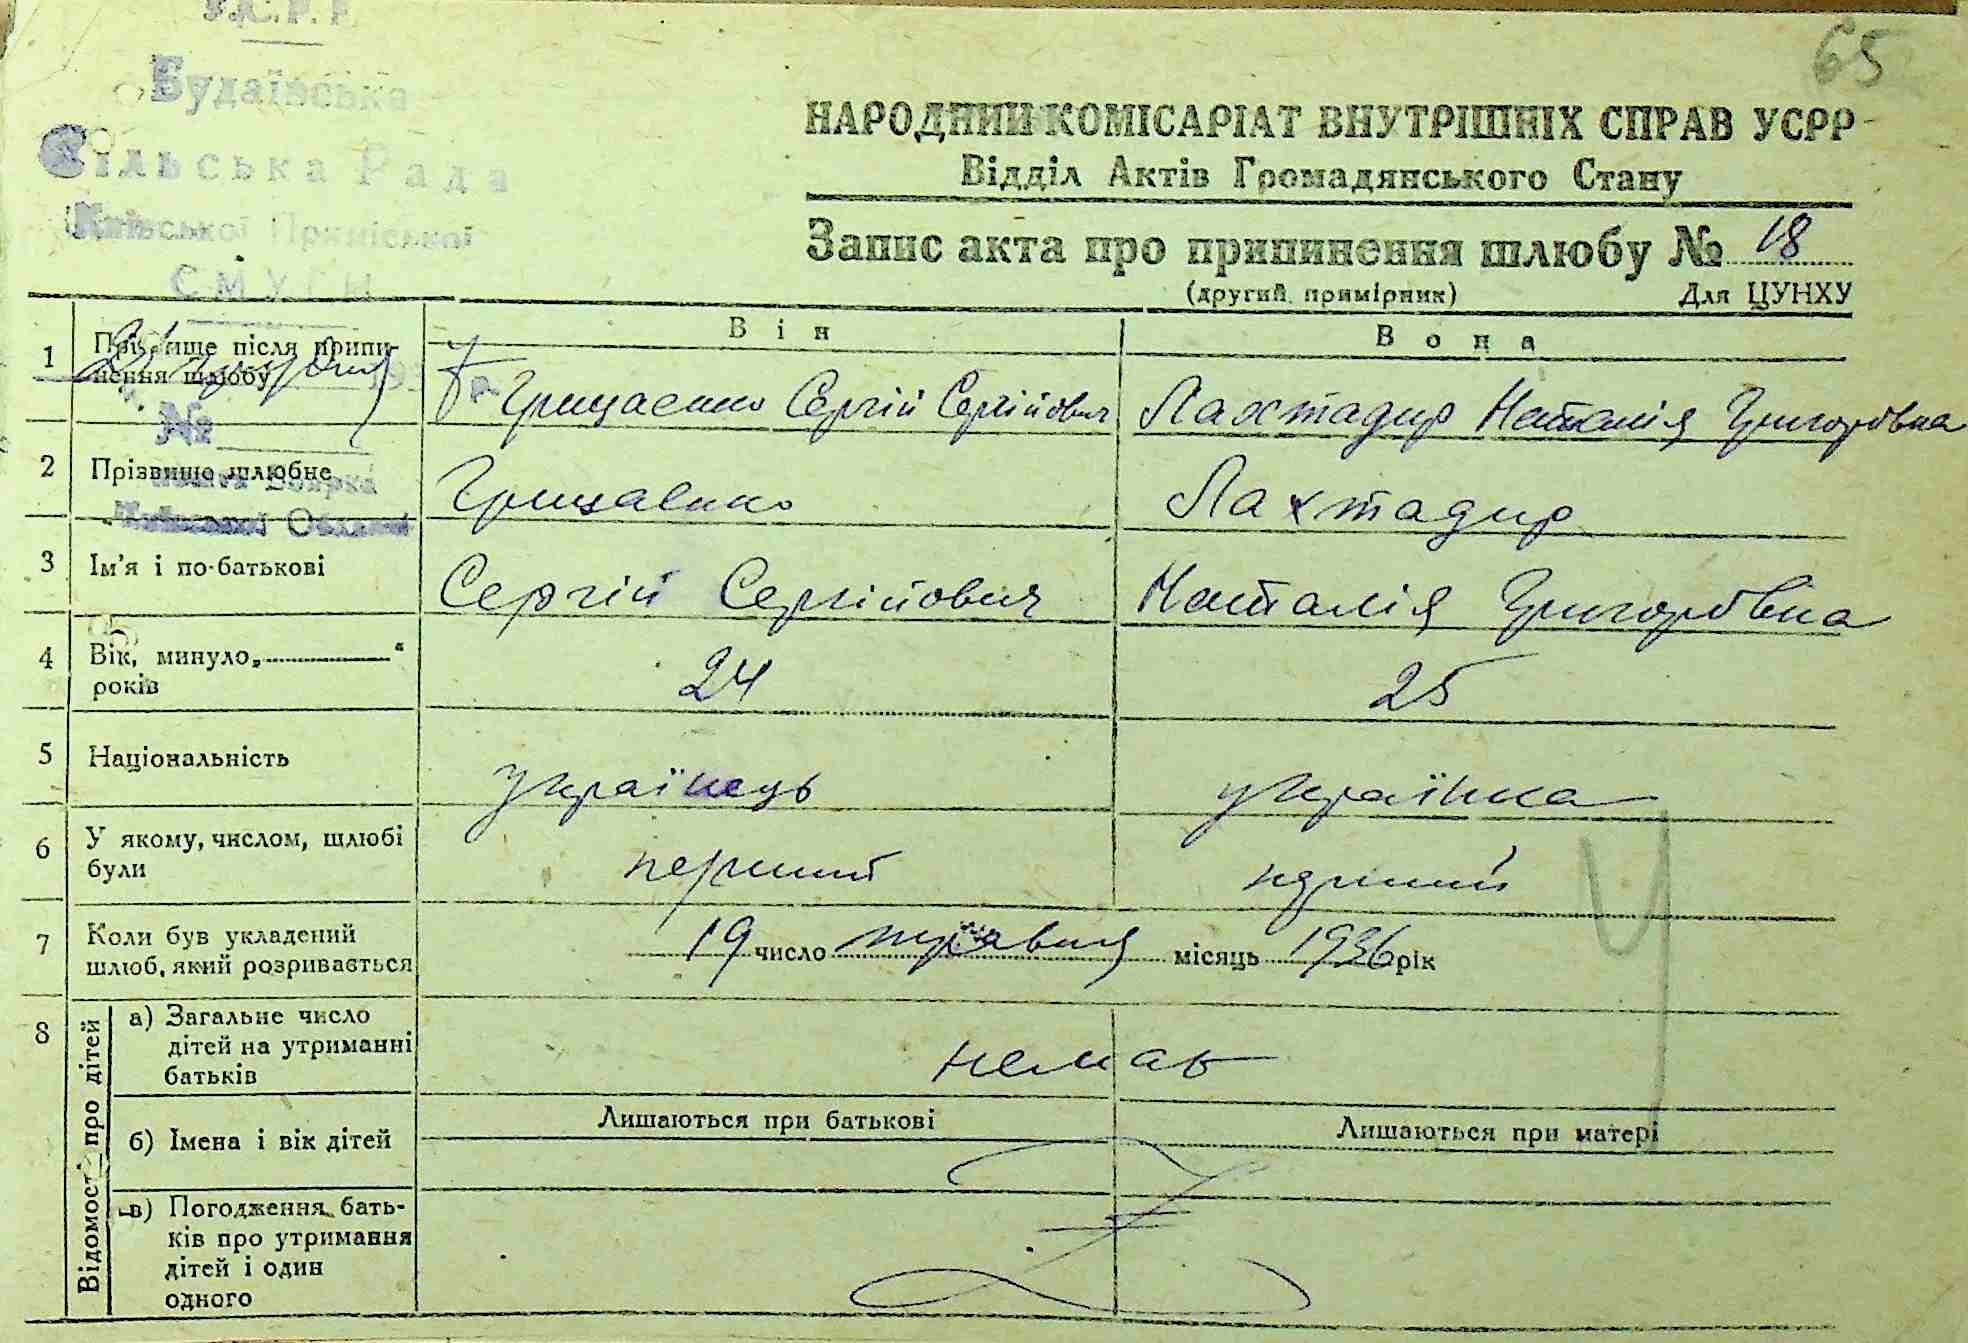 У.С.Р.Р.
65
Будаївська
Сільська Рада
Київської Приміської
СМУГИ
НАРОДНИЙ КОМІСАРІАТ ВНУТРІШНІХ СПРАВ УСРР
Відділ Актів Громадянського Стану
Запис акта про припинення шлюбу № 18
(другий примірник) Для ЦУНХУ
Він Вона
1 Прізвище після припинення шлюбу
Грицаєнко Сергій Сергійович Лахтадир Наталія Григорівна
№
2 Прізвище шлюбне Грицаєнко Лахтадир
пошта Боярка
Київської Області
3 Ім'я і по-батькові Сергій Сергійович Наталія Григорівна
4 Вік, минуло „ “ років 24 25
5 Національність українець українка
6 У якому, числом, шлюбі були перший перший
7 Коли був укладений шлюб, який розривається 19 число травня місяць 1936 рік
8 Відомості про дітей
а) Загальне число дітей на утриманні батьків немає
б) Імена і вік дітей Лишаються при батькові Лишаються при матері
в) Погодження батьків про утримання дітей і один одного